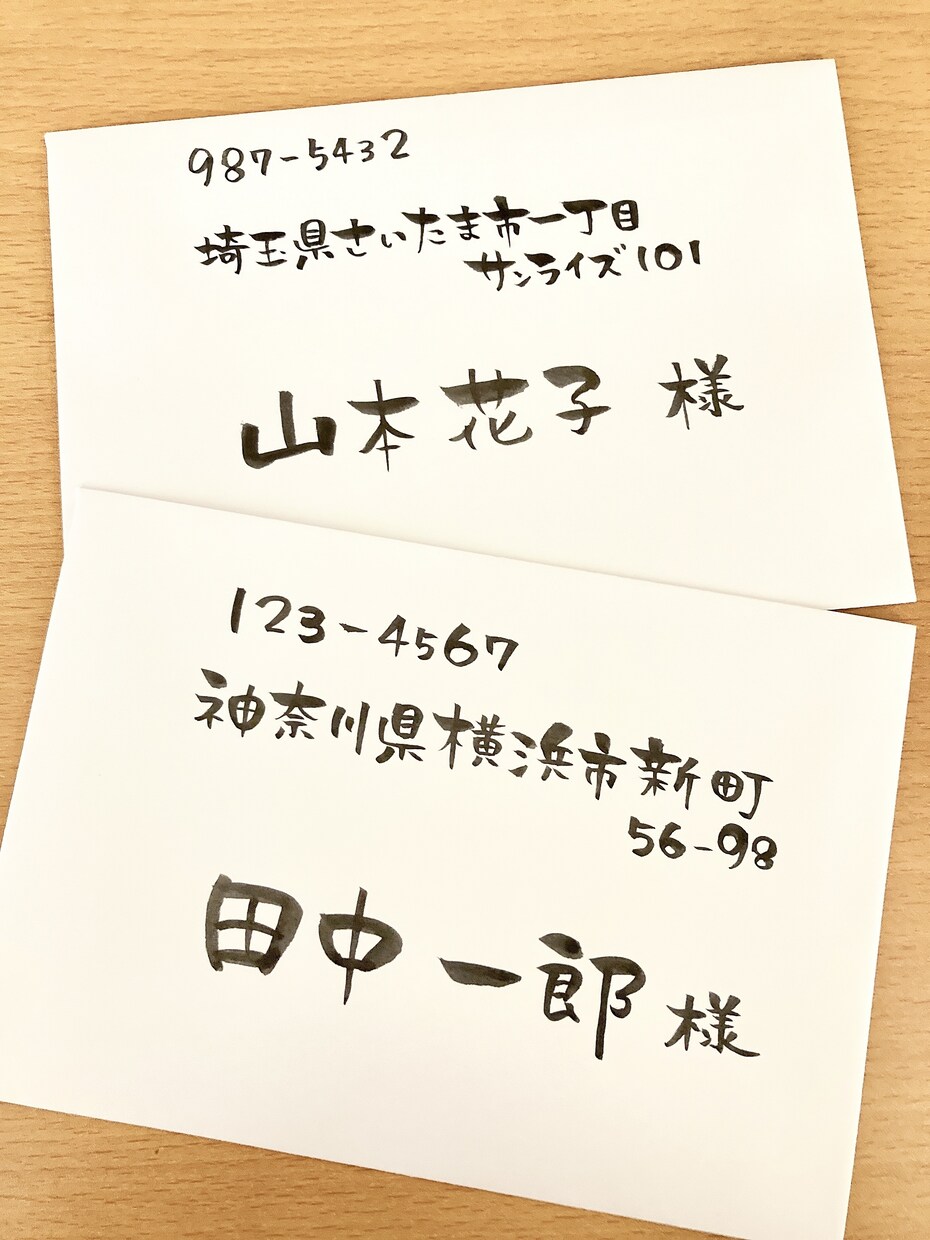 987-5432
埼玉県さいたま市一丁目
サンライズ101
山本花子 様
123-4567
神奈川県横浜市新町
56-98
田中一郎 様